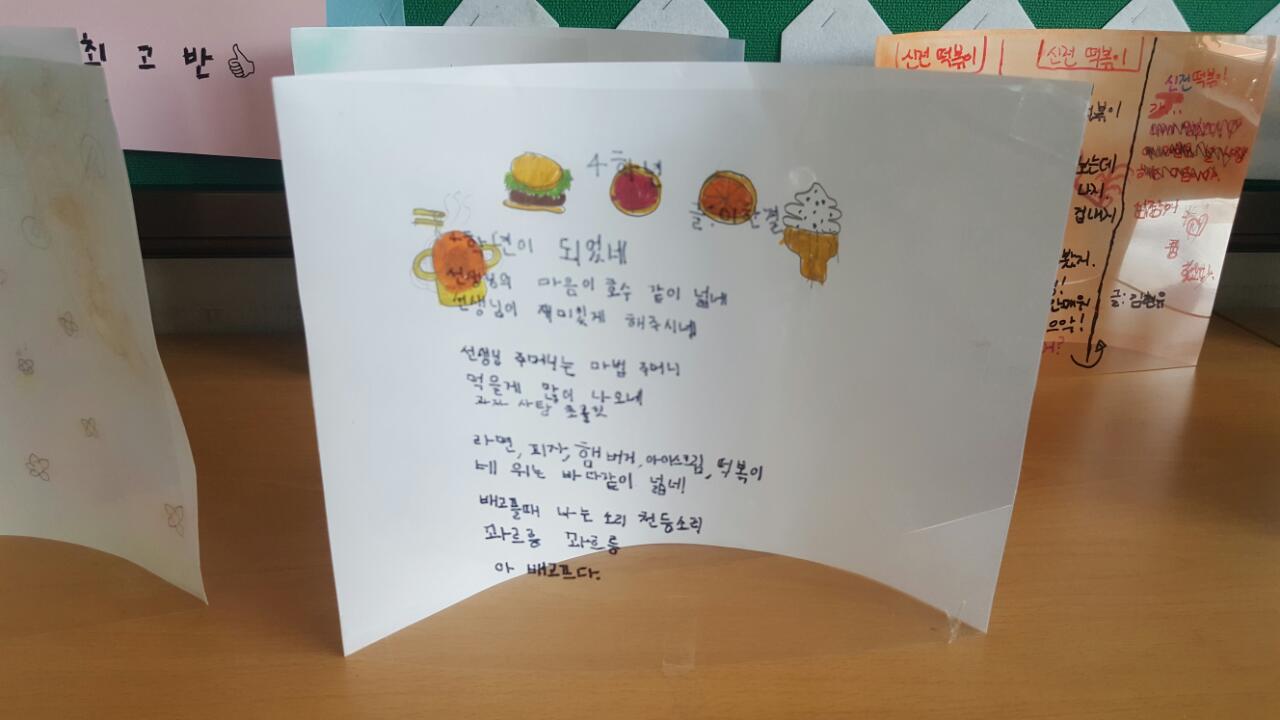 최고반
4학년
글:이한결
4학년이 되었네
선생님의 마음이 호수 같이 넓네
선생님이 재미있게 해주시네
선생님 주머니는 마법 주머니
먹을게 많이 나오네
과자 사탕 초콜릿
라면, 피자, 햄버거, 아이스크림, 떡복이
네 위는 바다같이 넓네!
배고플때 나는 소리 천둥소리
꽈르릉 꽈르릉
아 배고프다.
신전 떡볶이
신전 떡볶이
신전떡볶이
보는데
겁내지
봤지.
으악!
글:김현유